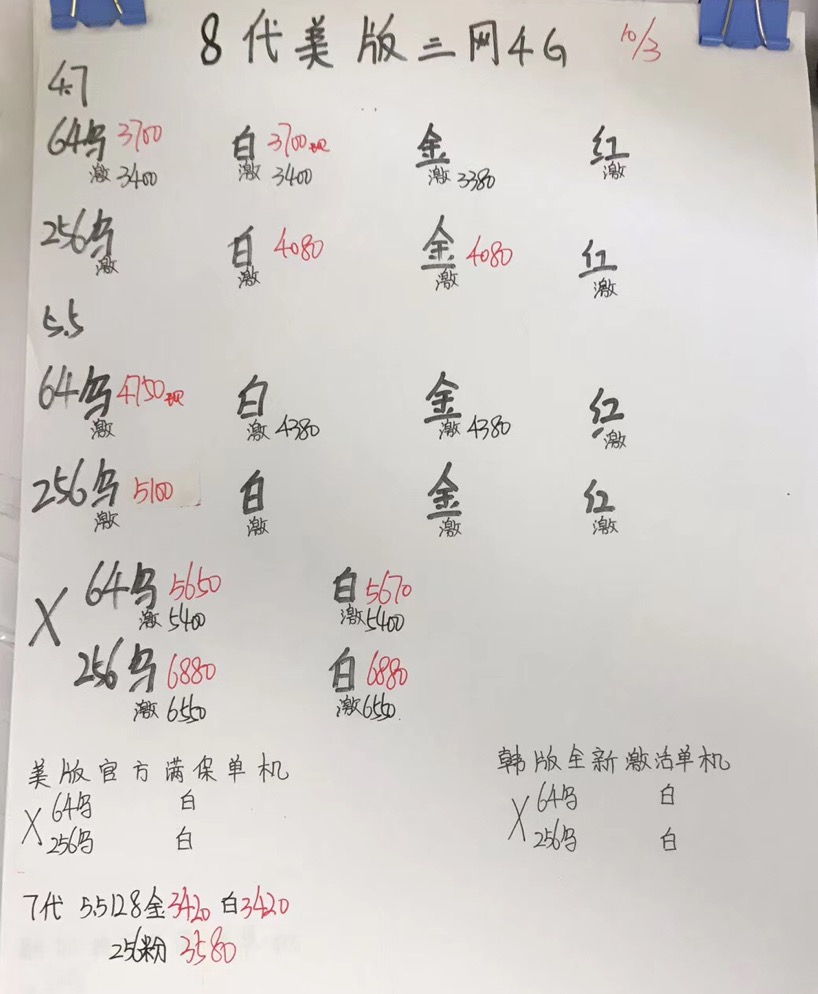 8代美版三网4G 10/3
4.7
64乌 3700 白 3700现 金 红
激 3400 激 3400 激 3380 激
256乌 白 4080 金 4080 红
激 激 激 激
5.5
64乌 4750现 白 金 红
激 激 4380 激 4380 激
256乌 5100 白 金 红
激 激 激 激
X 64乌 5650 白 5670
激 5400 激 5400
256乌 6880 白 6880
激 6550 激 6550
美版官方满保单机 韩版全新激活单机
X 64乌 白 X 64乌 白
256乌 白 256乌 白
7代 5.5 128金 3420 白 3420
256粉 3580